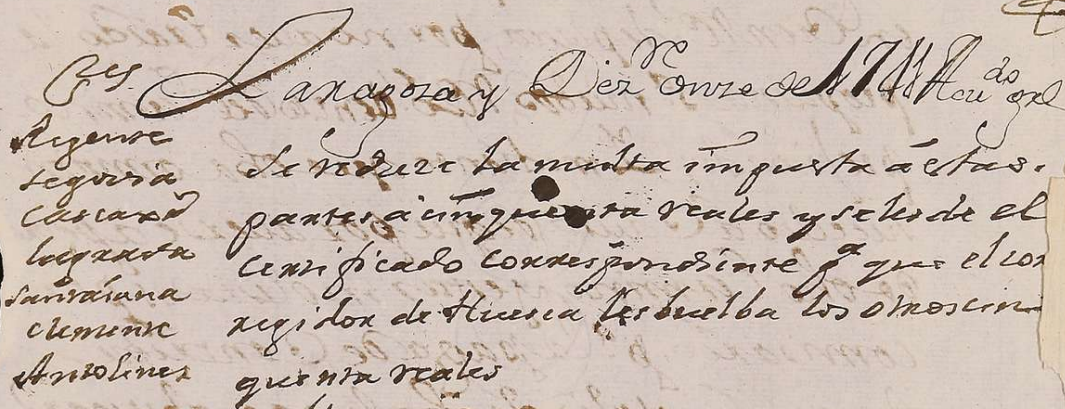 SSes.
Regente
Segovia
Cascaxl
Lagrava
Santaiana
Clemente
Antolinez
Zaragoza y Dizre onze de 1741 Acdo grl
Se reduze la multa impuesta a estas
partes a cinquenta reales y se les de el
certificado correspondiente pa que el cor
regidor de Huesca les buelba los otros cin
quenta reales